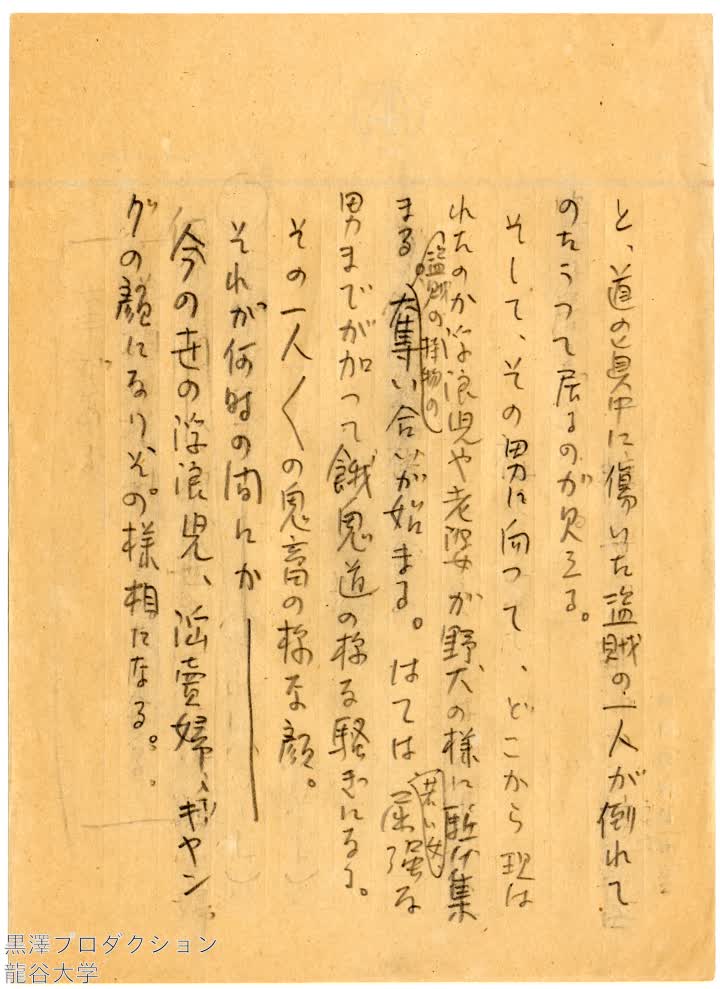 と、道の真中に傷いた盗賊の一人が倒れて
のたうつて居るのが見える。
そして、その男に向つて、どこから現は
れたのか浮浪児や老婆が野犬の様に駈け集
まる、盗賊の掠物の奪い合いが始まる。はては若い女屈強な
男までが加つて餓鬼道の様な騒ぎになる。
その一人〱の鬼畜の様な顔。
それが何時の間にか――
今の世の浮浪児、淫売婦、ギャン
グの顔になりその様相になる。
黒澤プロダクション
龍谷大学